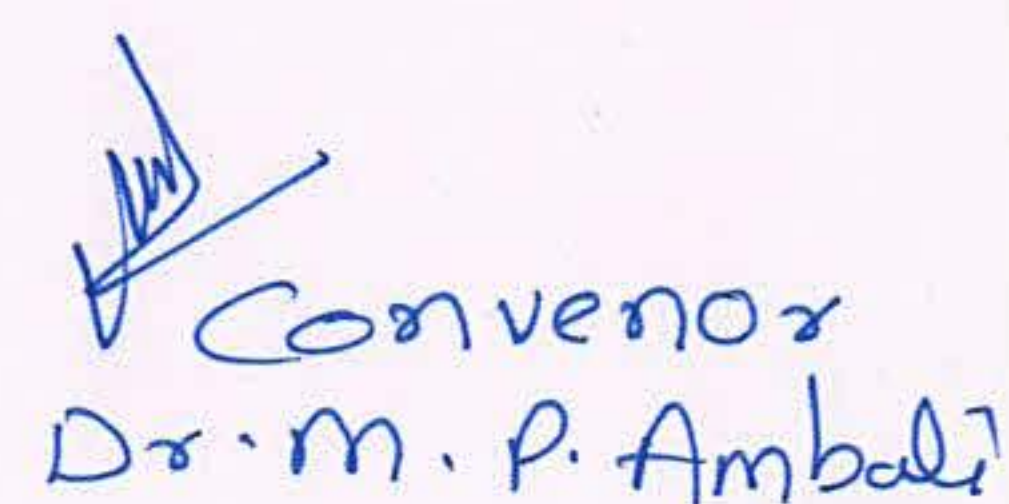 Convenor
Dr. M. P. Ambali